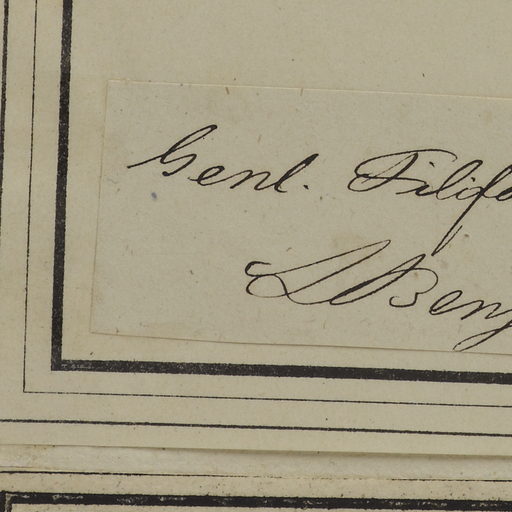 Genl. Filifo
L Benj